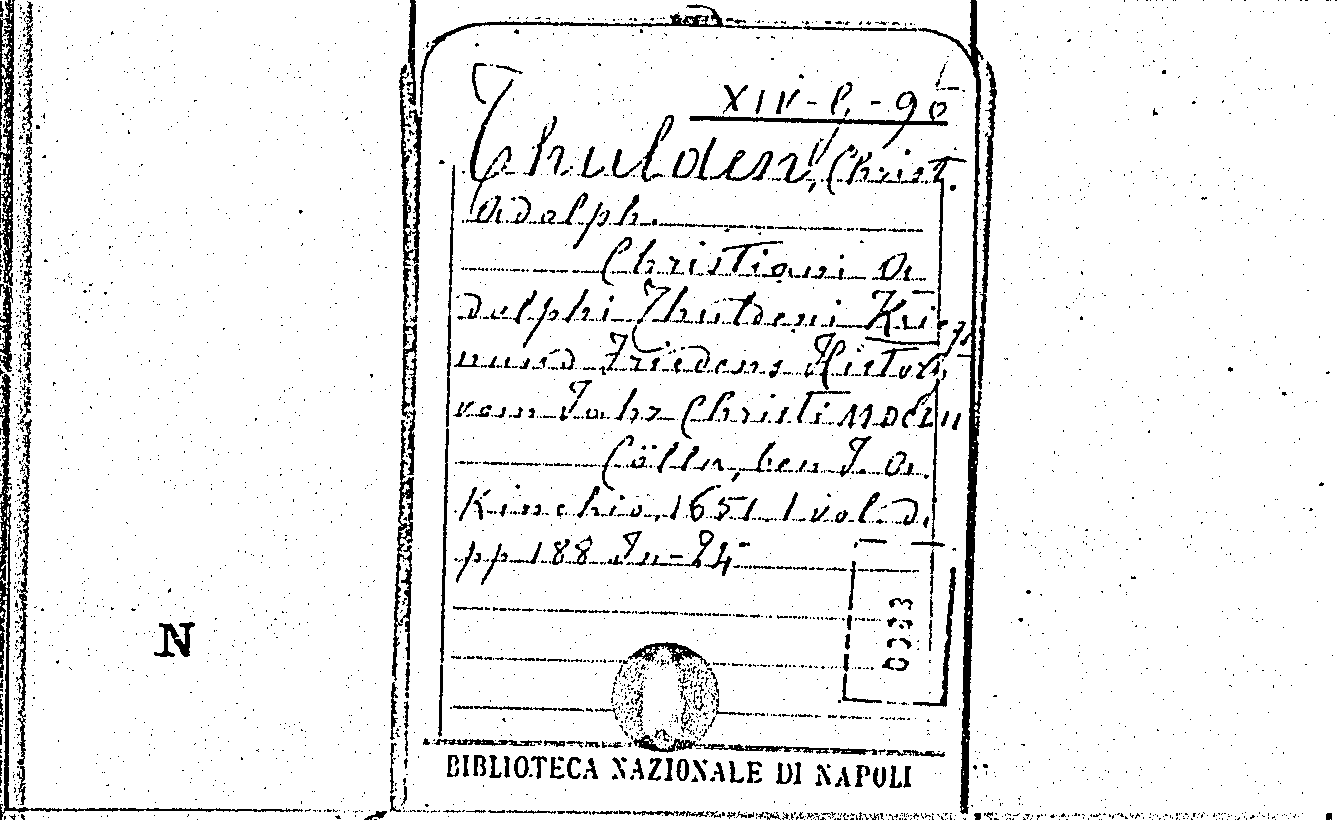 XIV-L-96
Thulden, Christ.
Adolph.
Christiani A
dolphi Thuldeni Kriegs
nund Friedens Histori
vom Jahr Christi MDCLII
Cölln, ben J. A.
Kinchio, 1651 1 vol. d.
pp 188 In-24°
0033
N
BIBLIOTECA NAZIONALE DI NAPOLI